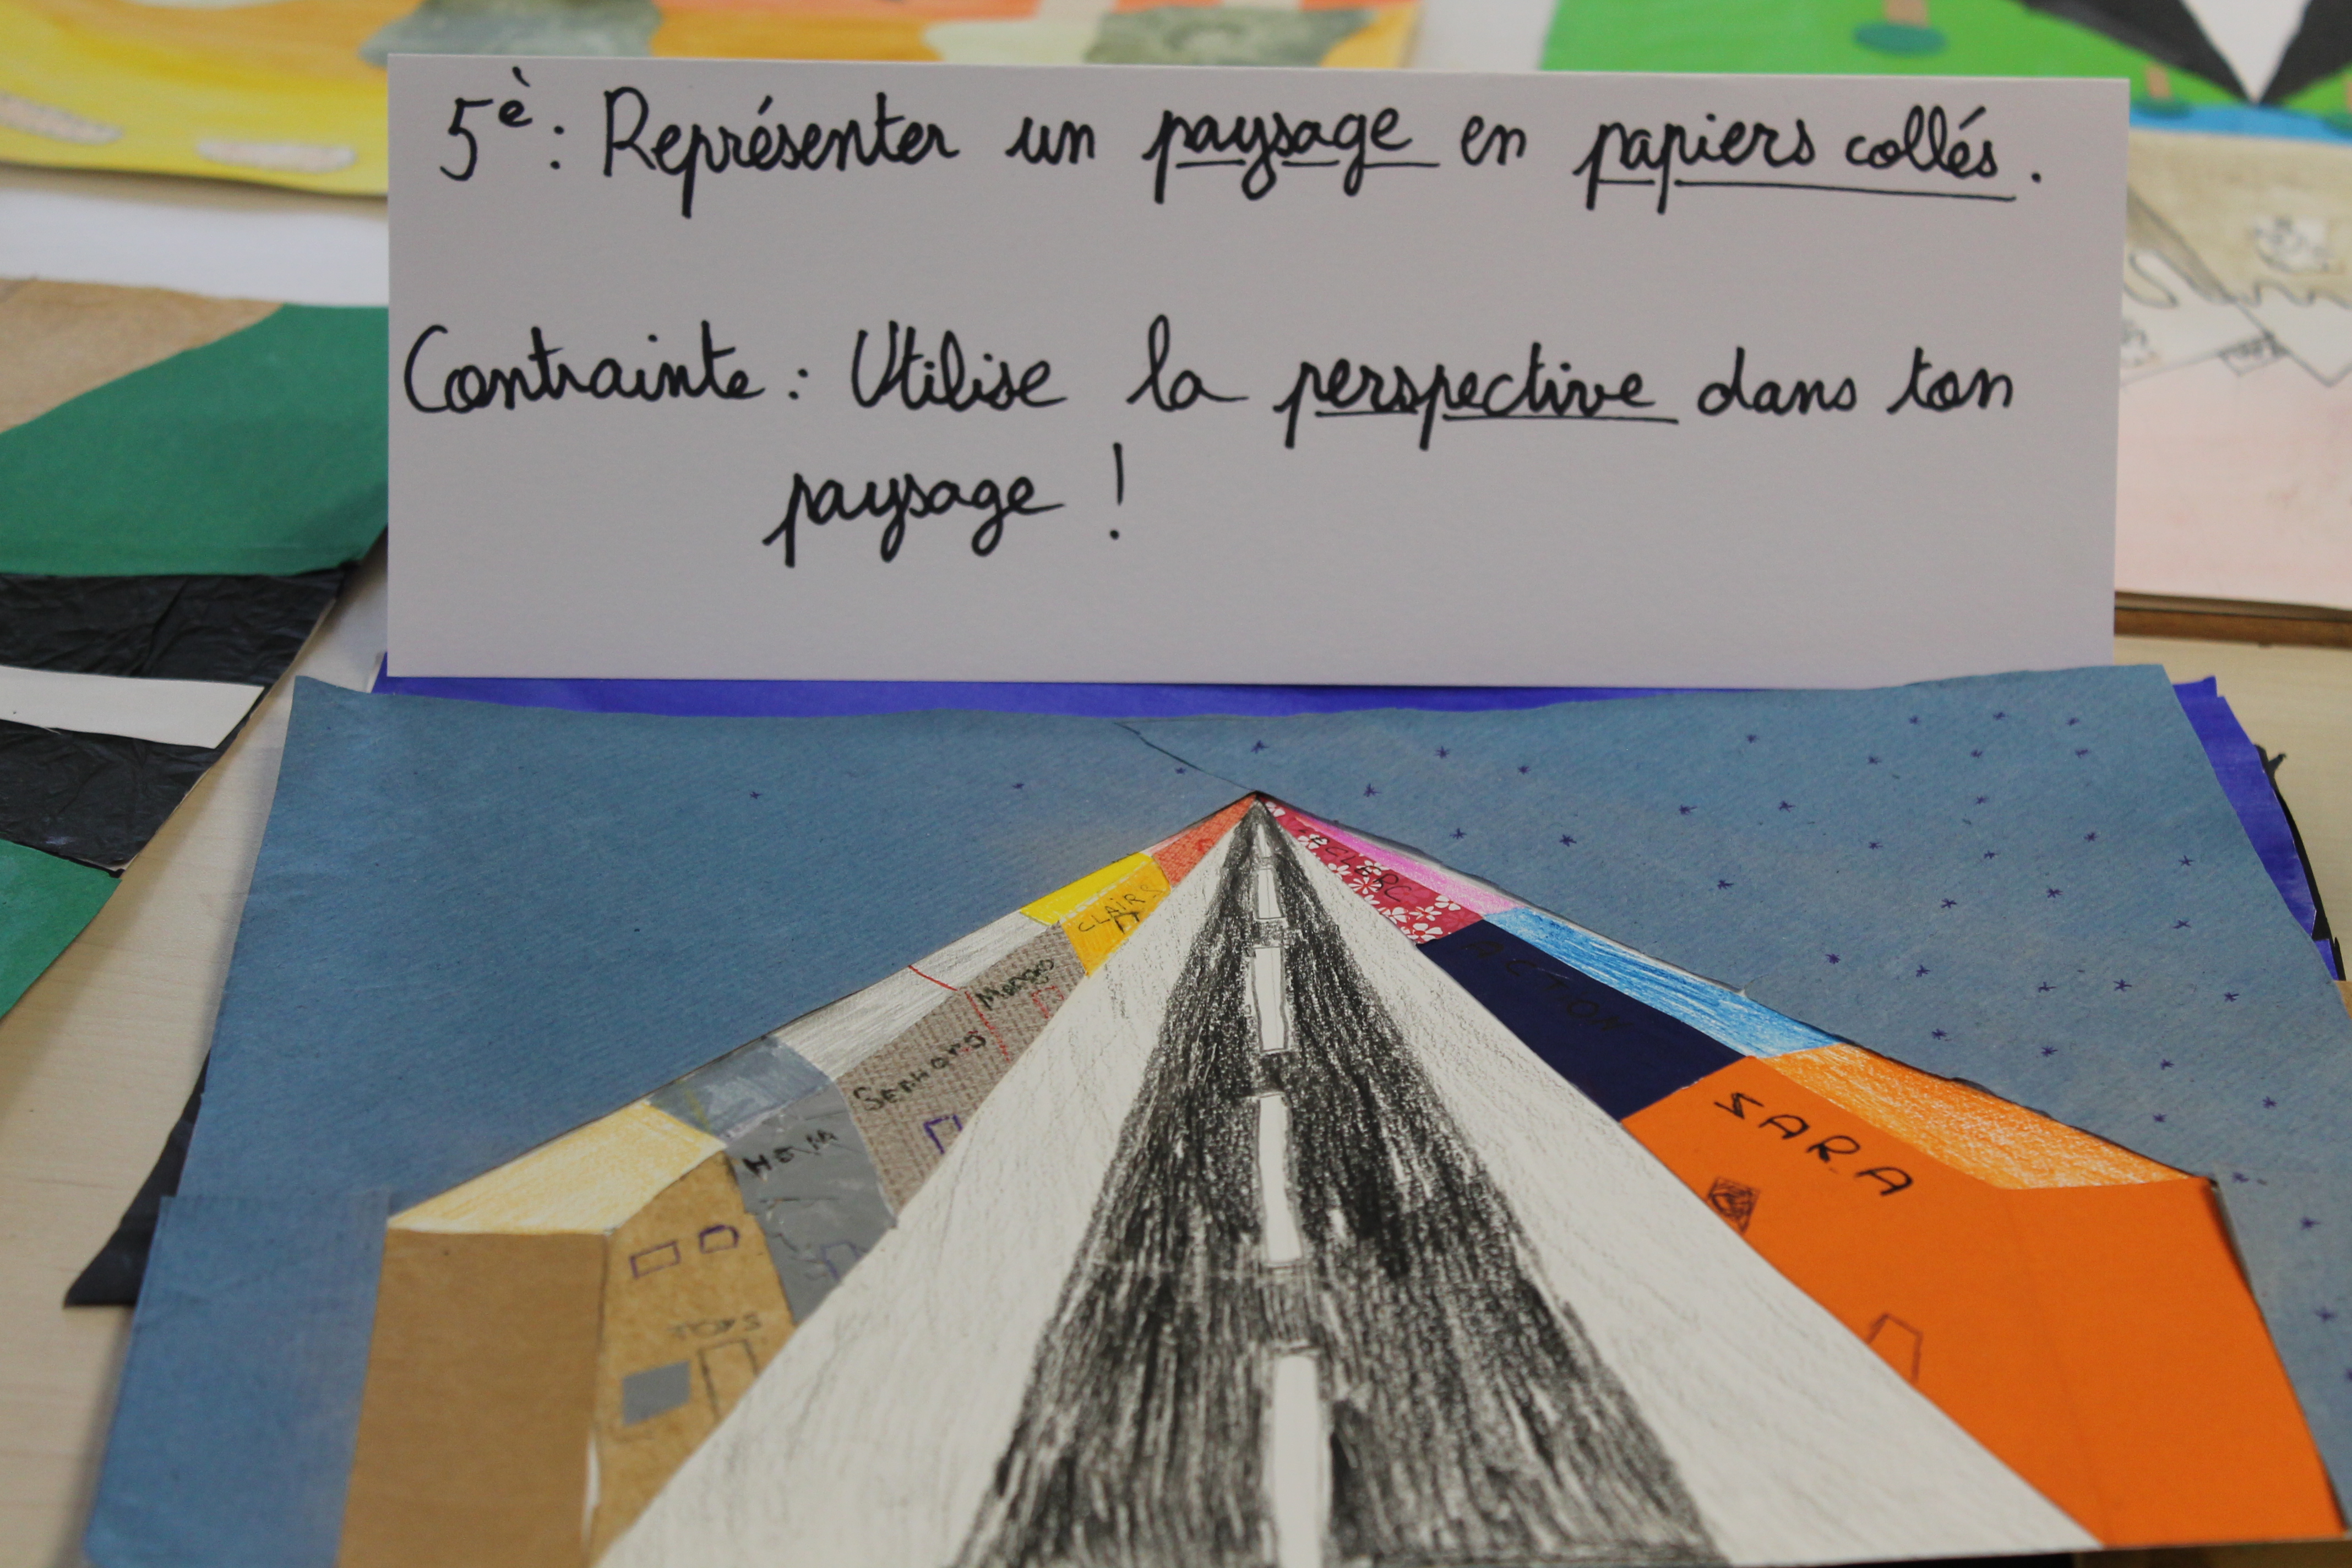 5è : Représenter un paysage en papiers collés.
Contrainte : Utilise la perspective dans ton
paysage !
CLAIR
ACTION
SARA